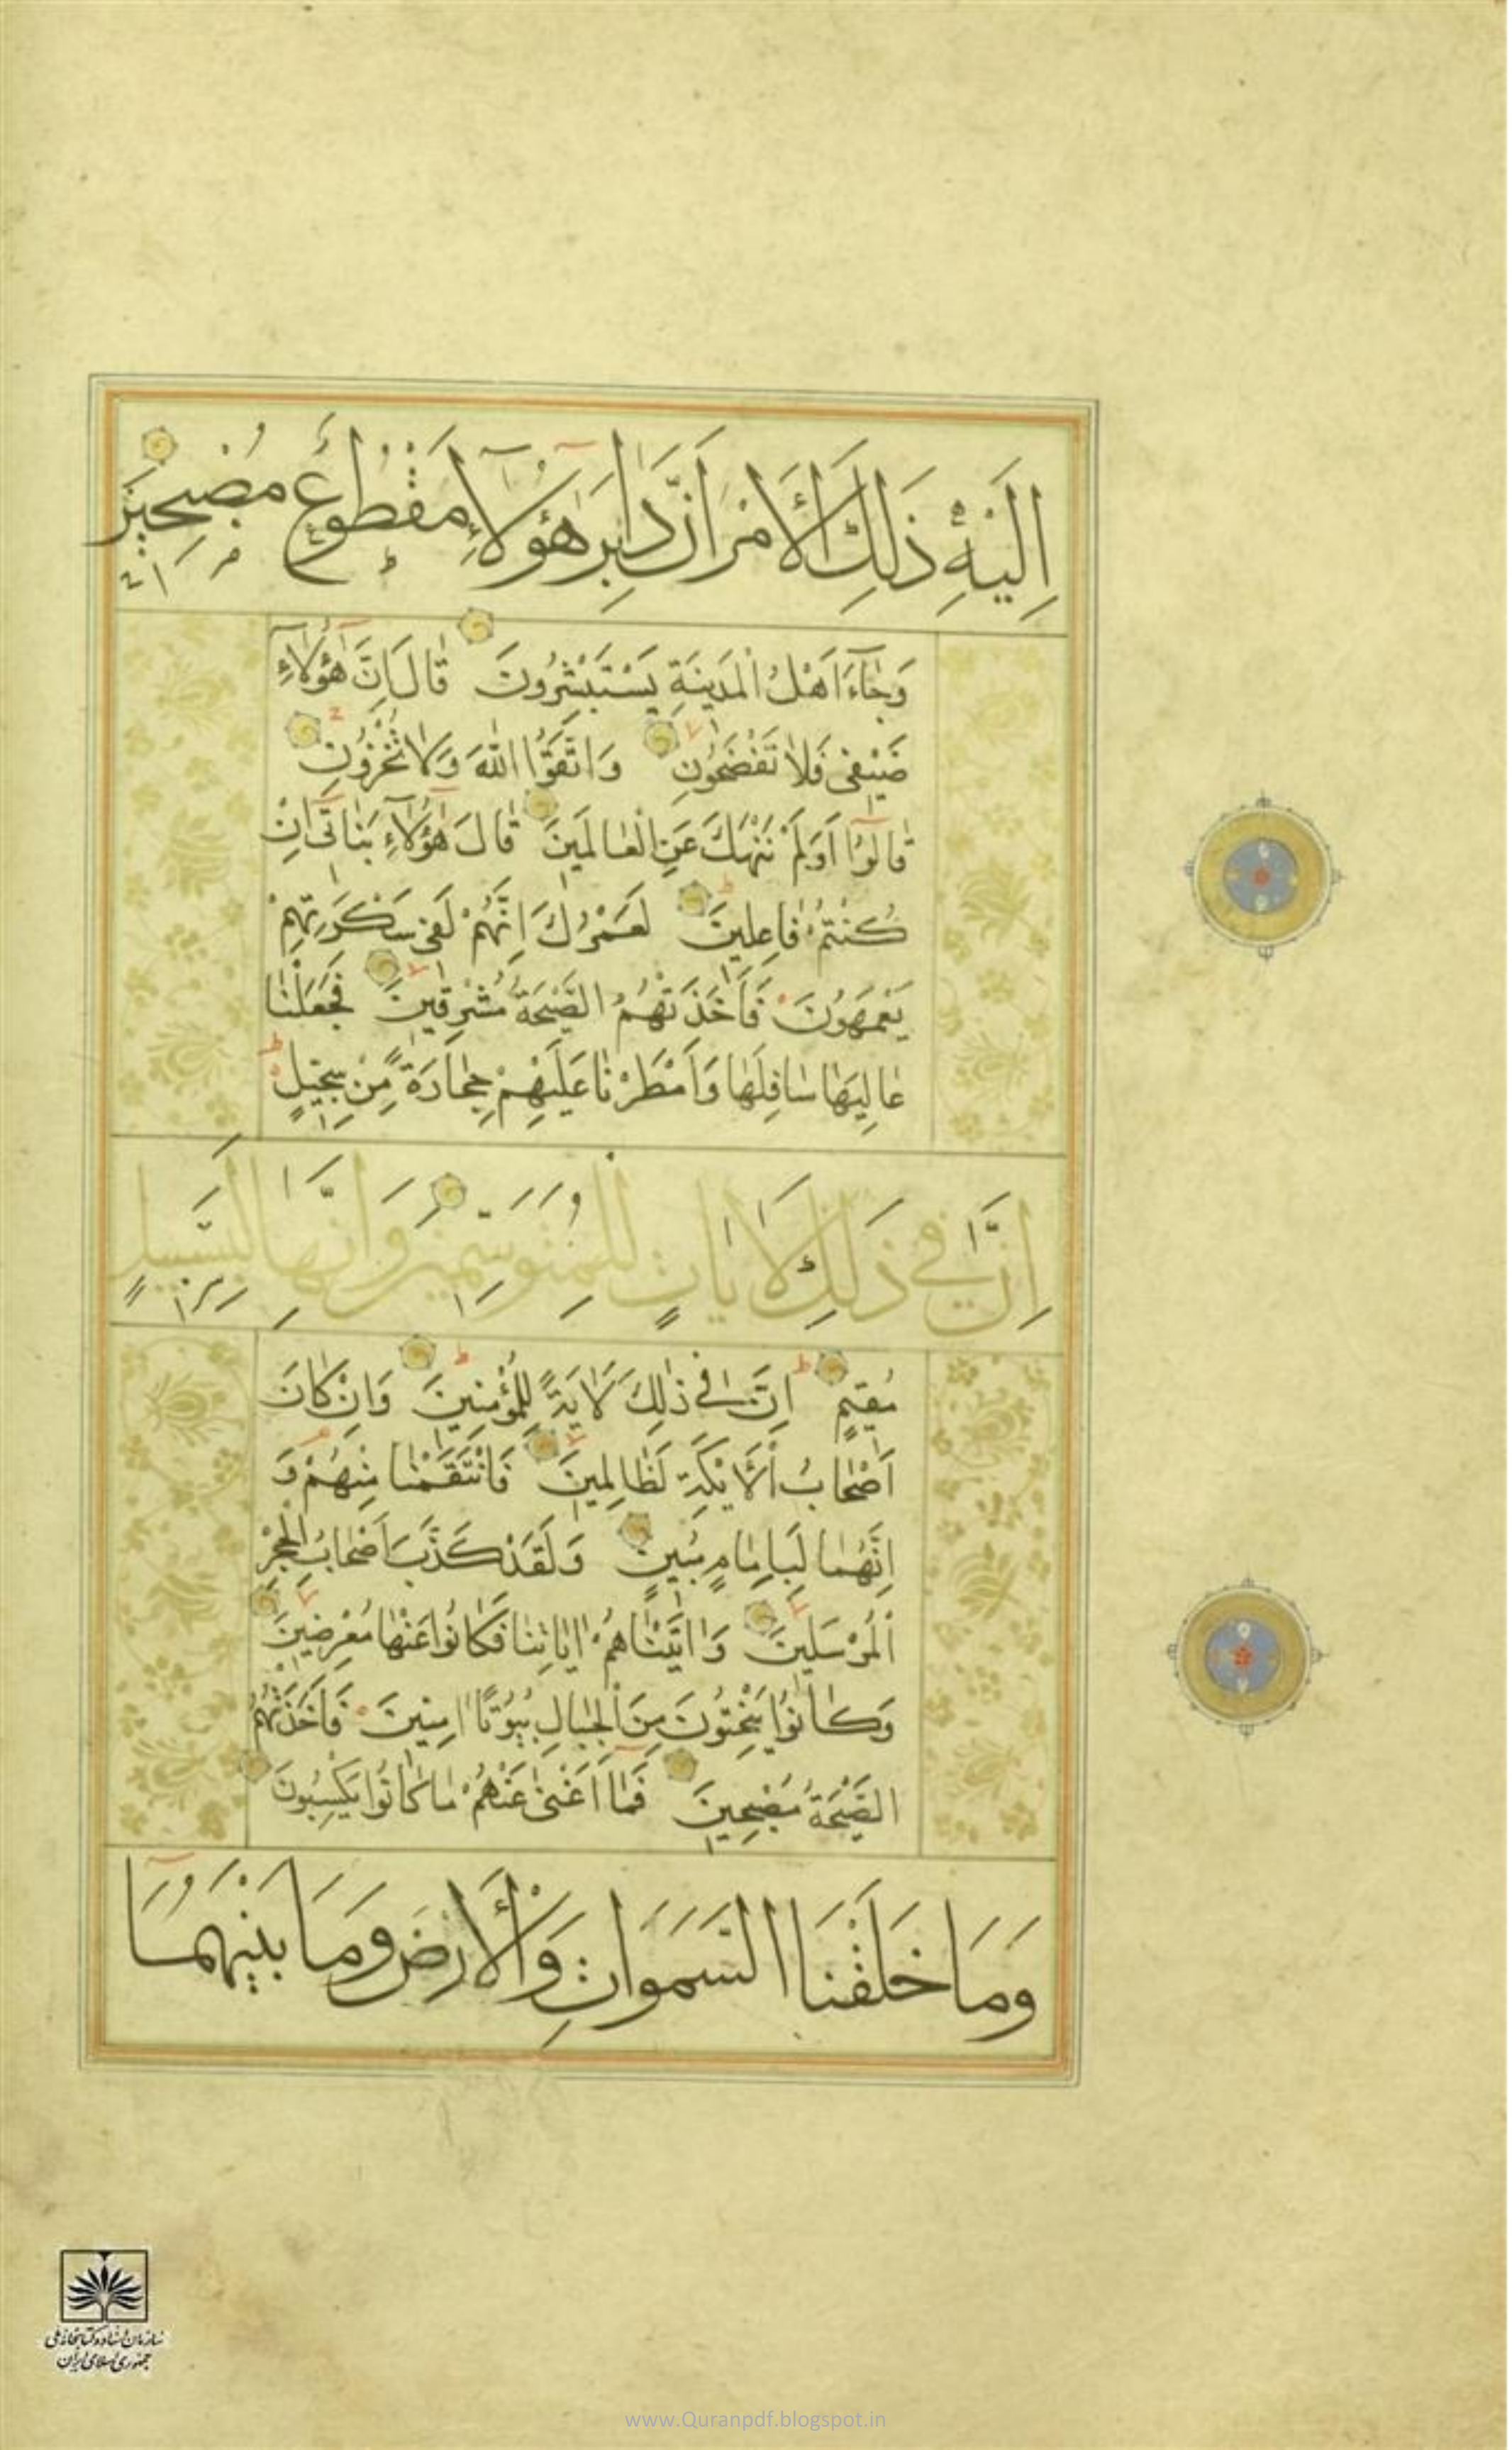 اِلَيْهِ ذَلِكَ الْأَمْرَ اَنَّ دَابِرَ هٰؤُلَآءِ مَقْطُوعٌ مُصْبِحِينَ
وَجَآءَ اَهْلُ الْمَدِينَةِ يَسْتَبْشِرُونَ قَالَ اِنَّ هٰؤُلَآءِ
ضَيْفِى فَلَا تَفْضَحُونِ وَاتَّقُوا اللّٰهَ وَلَا تُخْزُونِ
قَالُوٓا اَوَلَمْ نَنْهَكَ عَنِ الْعَالَمِينَ قَالَ هٰٓؤُلَآءِ بَنَاتِىٓ اِنْ
كُنْتُمْ فَاعِلِينَ لَعَمْرُكَ اِنَّهُمْ لَفِى سَكْرَتِهِمْ
يَعْمَهُونَ فَاَخَذَتْهُمُ الصَّيْحَةُ مُشْرِقِينَ فَجَعَلْنَا
عَالِيَهَا سَافِلَهَا وَاَمْطَرْنَا عَلَيْهِمْ حِجَارَةً مِنْ سِجِّيلٍ
اِنَّ فِى ذَلِكَ لَاٰيَاتٍ لِلْمُتَوَسِّمِينَ وَاِنَّهَا لَبِسَبِيلٍ
مُقِيمٍ اِنَّ فِى ذٰلِكَ لَاٰيَةً لِلْمُؤْمِنِينَ وَاِنْ كَانَ
اَصْحَابُ الْاَيْكَةِ لَظَالِمِينَ فَانْتَقَمْنَا مِنْهُمْ وَ
اِنَّهُمَا لَبِاِمَامٍ مُبِينٍ وَلَقَدْ كَذَّبَ اَصْحَابُ الْحِجْرِ
الْمُرْسَلِينَ وَاٰتَيْنَاهُمْ اٰيَاتِنَا فَكَانُوا عَنْهَا مُعْرِضِينَ
وَكَانُوا يَنْحِتُونَ مِنَ الْجِبَالِ بُيُوتًا اٰمِنِينَ فَاَخَذَتْهُمُ
الصَّيْحَةُ مُصْبِحِينَ فَمَآ اَغْنٰى عَنْهُمْ مَا كَانُوا يَكْسِبُونَ
وَمَا خَلَقْنَا السَّمَوَاتِ وَالْأَرْضَ وَمَا بَيْنَهُمَآ
سازمان اسناد و کتابخانه ملی
جمهوری اسلامی ایران
www.Quranpdf.blogspot.in